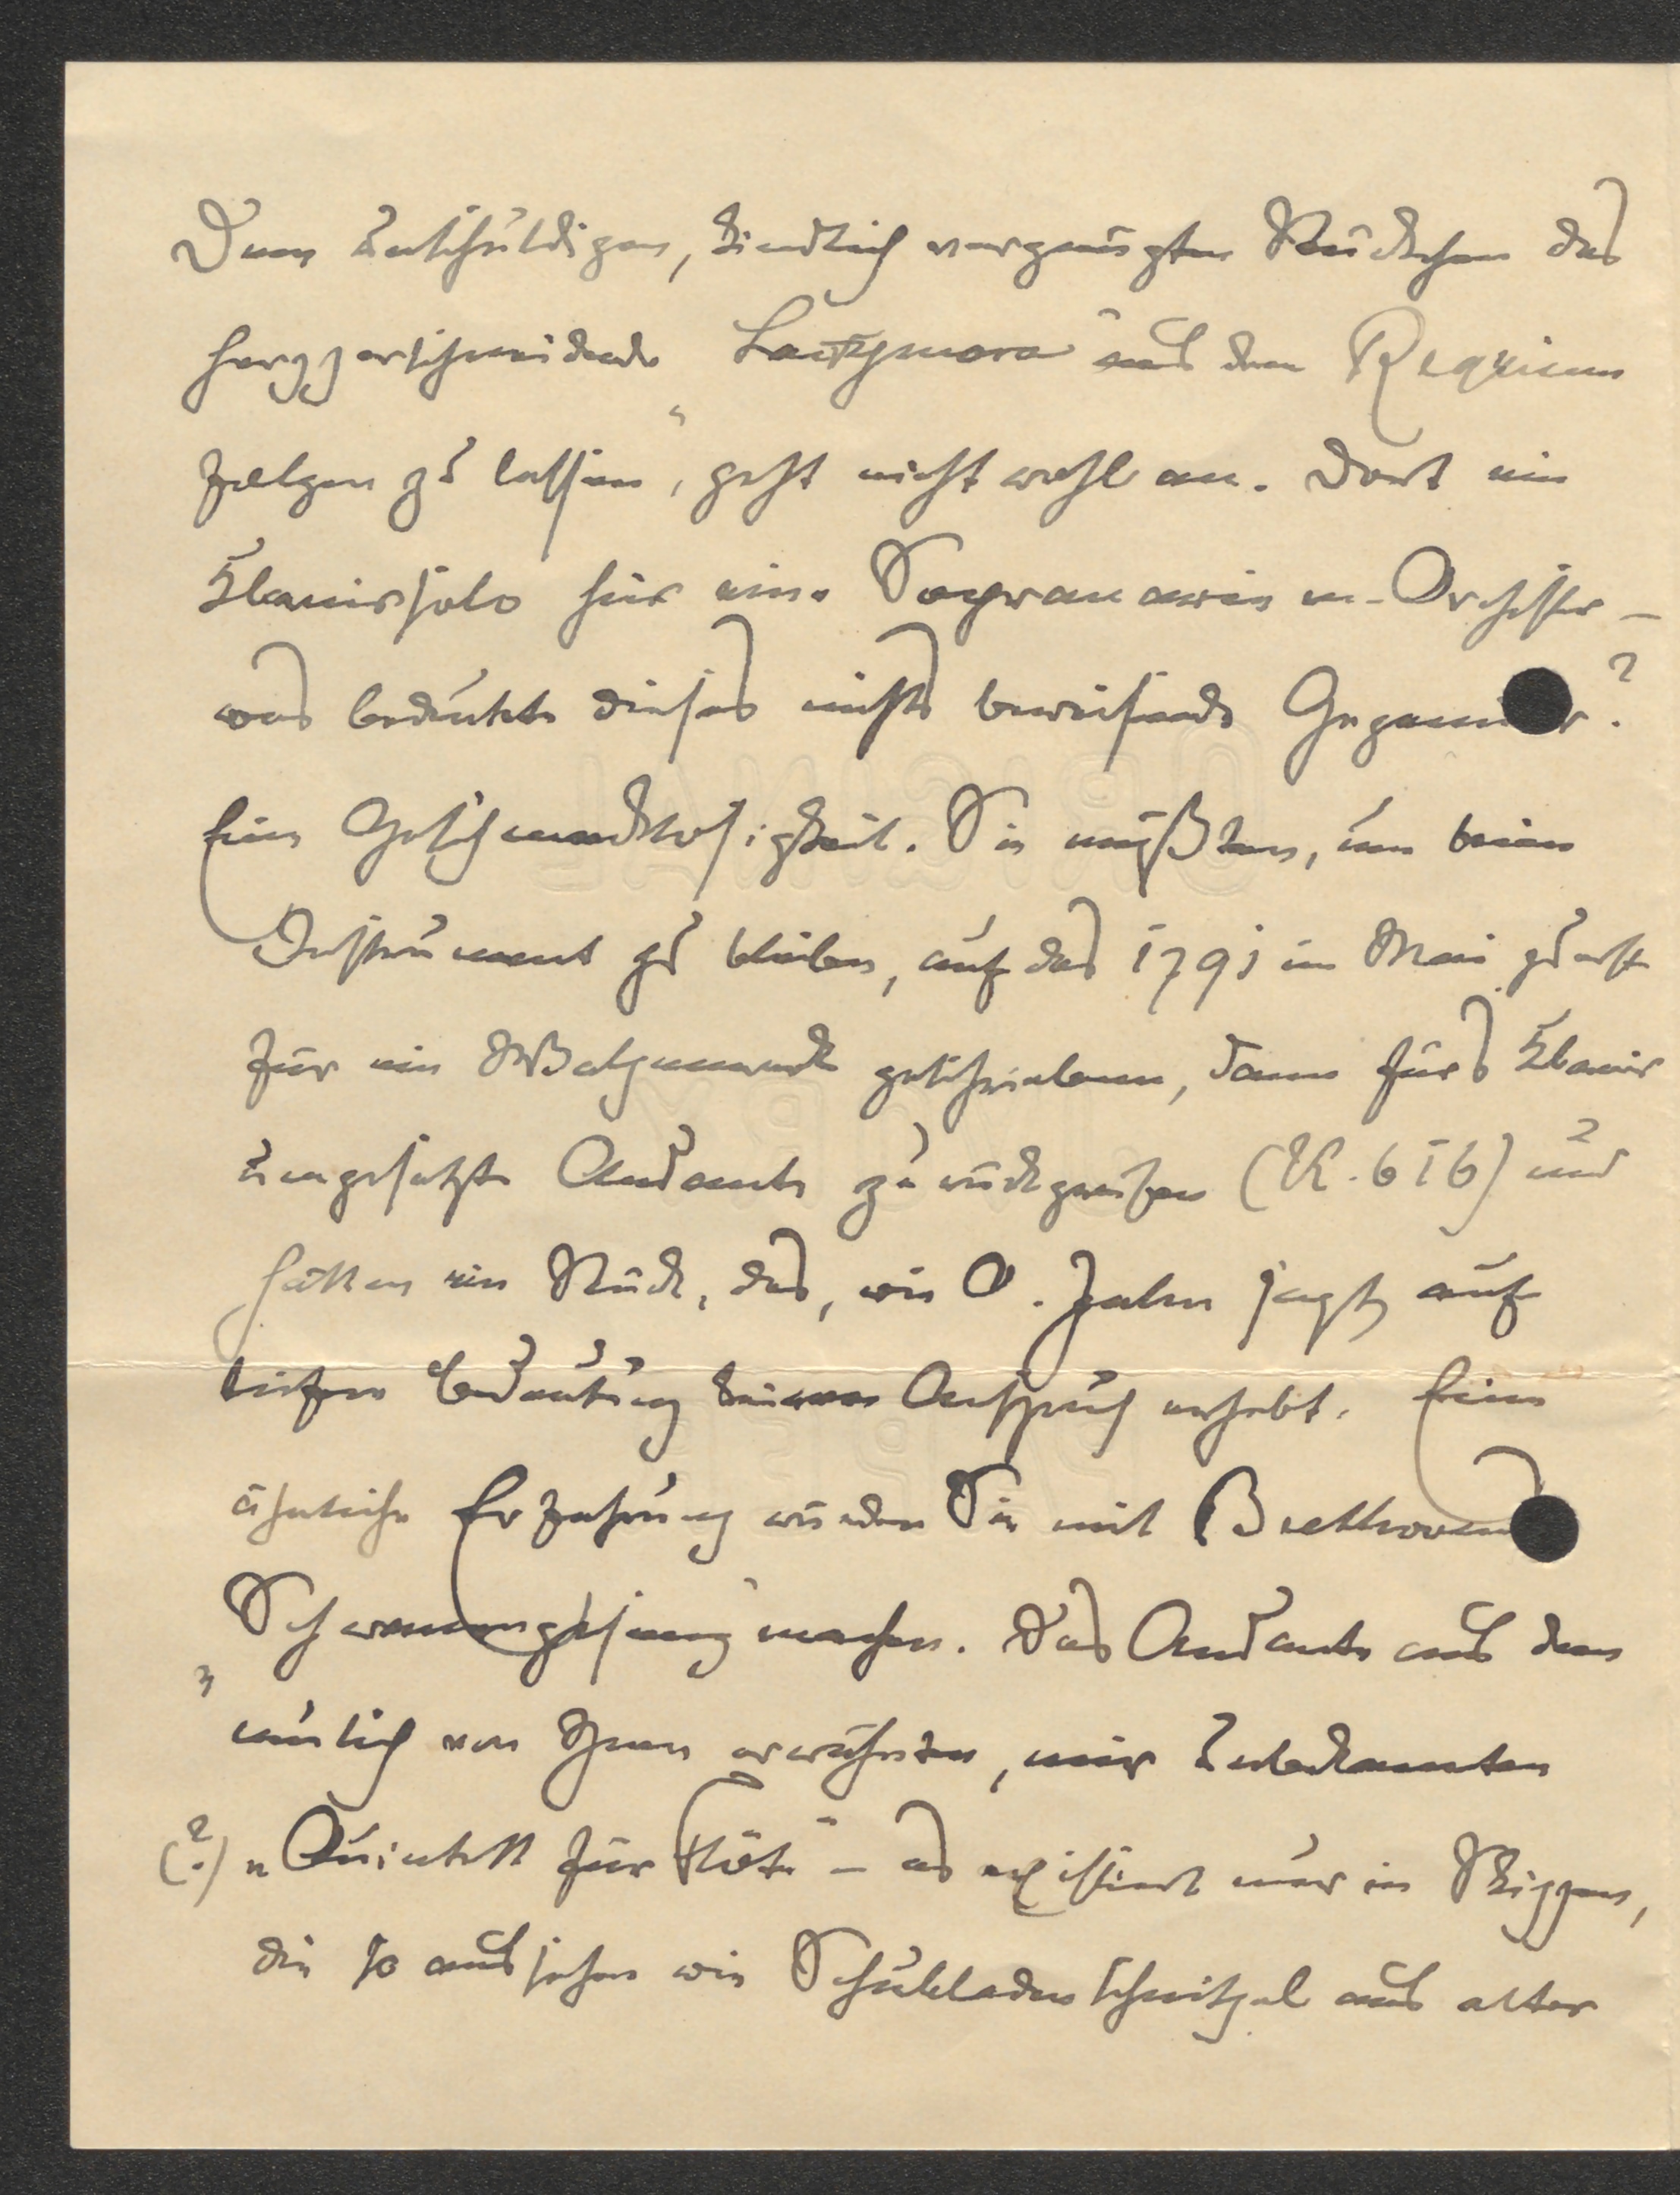 Dem unschuldigen, kindlich vergnügten Stückchen das
herzzerschneidende „Lacrymosa“ aus dem Requiem
folgen zu lassen, geht nicht wohl an. Dort ein
Klaviersolo hier eine Sopranarie m. Orchester –
was bedeutete dieses nichts beweisende Gegenüber?
Eine Geschmacklosigkeit. Sie müßten, um beim
Instrument zu bleiben, auf das 1791 im Mai zuerst
für ein Walzenwerk geschriebene, dann fürs Klavier
umgesetzte Andante zurückgreifen (K. 616) und
hätten ein Stück, das, wie O. Jahn sagt, auf
tiefere Bedeutung keinen Anspruch erhebt. Eine
ähnliche Erfahrung würden Sie mit Beethovens
„Schwanengesang“ machen. Das Andante aus dem
neulich von Ihnen erwähnten, mir unbekannten
(?) „Quintett für Flöte“ – es existiert nur in Skizzen,
die so aussehen wie Schubladenschnitzel aus alter
ORIGINAL